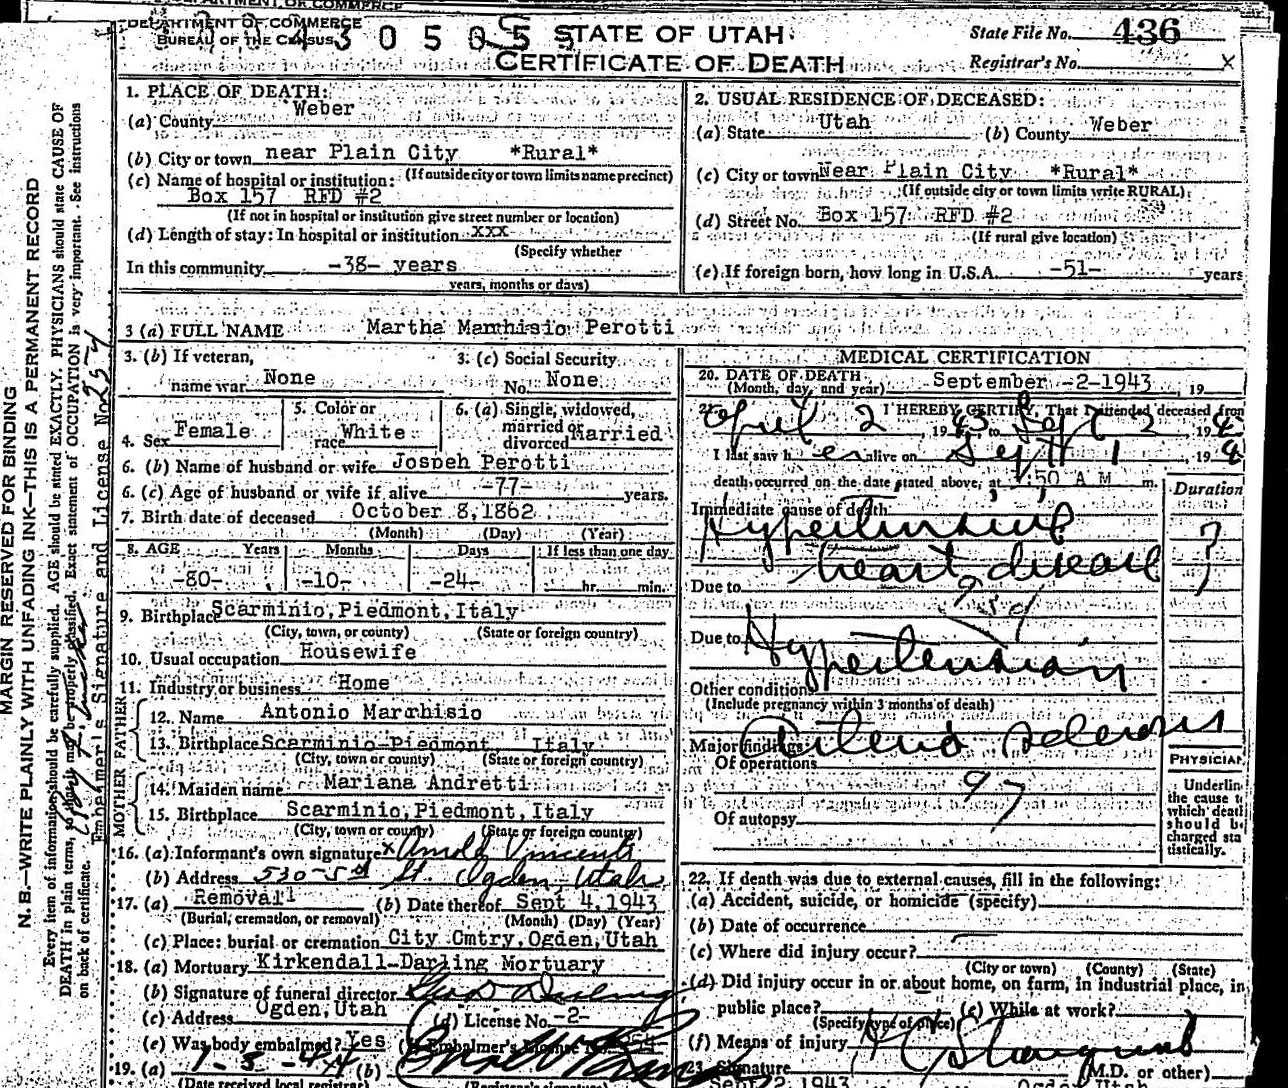 DEPARTMENT OF COMMERCE
BUREAU OF THE CENSUS
STATE OF UTAH
CERTIFICATE OF DEATH
State File No. 436
Registrar's No.
MARGIN RESERVED FOR BINDING
N. B.—WRITE PLAINLY WITH UNFADING INK—THIS IS A PERMANENT RECORD
Every item of information should be carefully supplied. AGE should be stated EXACTLY. PHYSICIANS should state CAUSE OF
DEATH in plain terms, so that it may be properly classified. Exact statement of OCCUPATION is very important. See instructions
on back of certificate.
Embalmer's Signature and License No.
1. PLACE OF DEATH:
(a) County Weber
(b) City or town near Plain City *Rural*
(If outside city or town limits name precinct)
(c) Name of hospital or institution:
Box 157 RFD #2
(If not in hospital or institution give street number or location)
(d) Length of stay: In hospital or institution xxx
(Specify whether
In this community -38- years
years, months or days)
2. USUAL RESIDENCE OF DECEASED:
(a) State Utah (b) County Weber
(c) City or town Near Plain City *Rural*
(If outside city or town limits write RURAL)
(d) Street No. Box 157 RFD #2
(If rural give location)
(e) If foreign born, how long in U.S.A. -51- years
3 (a) FULL NAME Martha Marchisio Perotti
3. (b) If veteran, name war None
3. (c) Social Security No. None
4. Sex Female
5. Color or race White
6. (a) Single, widowed, married or divorced Married
6. (b) Name of husband or wife Jospeh Perotti
6. (c) Age of husband or wife if alive -77- years.
7. Birth date of deceased October 8,1862
(Month) (Day) (Year)
8. AGE Years Months Days If less than one day
-80- -10- -24- hr. min.
9. Birthplace Scarminio,Piedmont,Italy
(City, town, or county) (State or foreign country)
10. Usual occupation Housewife
11. Industry or business Home
FATHER
12. Name Antonio Marchisio
13. Birthplace Scarminio-Piedmont, Italy
(City, town, or county) (State or foreign country)
MOTHER
14. Maiden name Mariana Andretti
15. Birthplace Scarminio,Piedmont,Italy
(City, town or county) (State or foreign country)
16. (a) Informant's own signature x Arnold Vincenti
(b) Address 530-5th St. Ogden, Utah
17. (a) Removal (b) Date thereof Sept 4,1943
(Burial, cremation, or removal) (Month) (Day) (Year)
(c) Place: burial or cremation City Cmtry,Ogden,Utah
18. (a) Mortuary Kirkendall-Darling Mortuary
(b) Signature of funeral director
(c) Address Ogden,Utah (d) License No. -2-
(e) Was body embalmed? Yes (f) Embalmer's License No.
19. (a) 1-3-44 (b)
(Date received local registrar) (Registrar's signature)
MEDICAL CERTIFICATION
20. DATE OF DEATH
(Month, day, and year) September -2-1943, 19
21. I HEREBY CERTIFY, That I attended deceased from
April 2, 1943 to Sept 2, 19
I last saw her alive on Sept 1, 19
death occurred on the date stated above, at :50 A M m.
Duration
Immediate cause of death
Hypertensive
heart disease ?
Due to
93d
Due to Hypertension
Other conditions
(Include pregnancy within 3 months of death)
Arterio sclerosis
Major findings:
Of operations
97
Of autopsy
PHYSICIAN
Underline
the cause to
which death
should be
charged sta
tistically.
22. If death was due to external causes, fill in the following:
(a) Accident, suicide, or homicide (specify)
(b) Date of occurrence
(c) Where did injury occur?
(City or town) (County) (State)
(d) Did injury occur in or about home, on farm, in industrial place, in
public place? (e) While at work?
(Specify type of place)
(f) Means of injury
23. Signature (M.D. or other)
Sept 2 1943 Ogden Utah